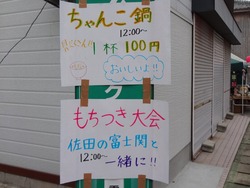 ちゃんこ鍋
12:00〜
1杯100円
おいしいよ!!
もちつき大会
佐田の富士関と
12:00〜
一緒に!!